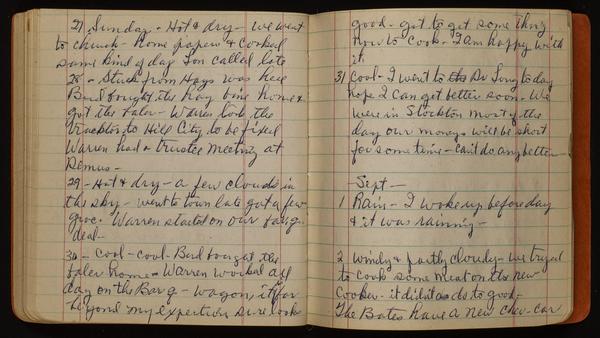 27, Sunday - Hot & dry - we went
to church - home papers & cooked
same kind of day Ion called late
28 - Stuck from Hays was here
Bud bought the hay bine home &
got the baler - Warren took the
truck to Hill City to be fixed
Warren had a trustee meeting at
Remus -
29 - Hot & dry - a few clouds in
the sky - went to town late got a few
groc. Warren started on our
deal -
30 - Cool - cool - Bud bought the
baler home - Warren worked all
day on the Bar q - wagon, it far
beyond my expections sure look
good - got to get some thing
now to cook - I am happy with
it
31 Cool - I went to Dr Long today
hope I can get better soon - we
were in Stockton most of the
day our money will be short
for some time - can't do any better
Sept -
1 Rain - I woke up before day
& it was raining -
2 windy & partly cloudy - we tryed
to cook some meat on the new
Cooker - it did it to good -
The Bates have a new Chev-car